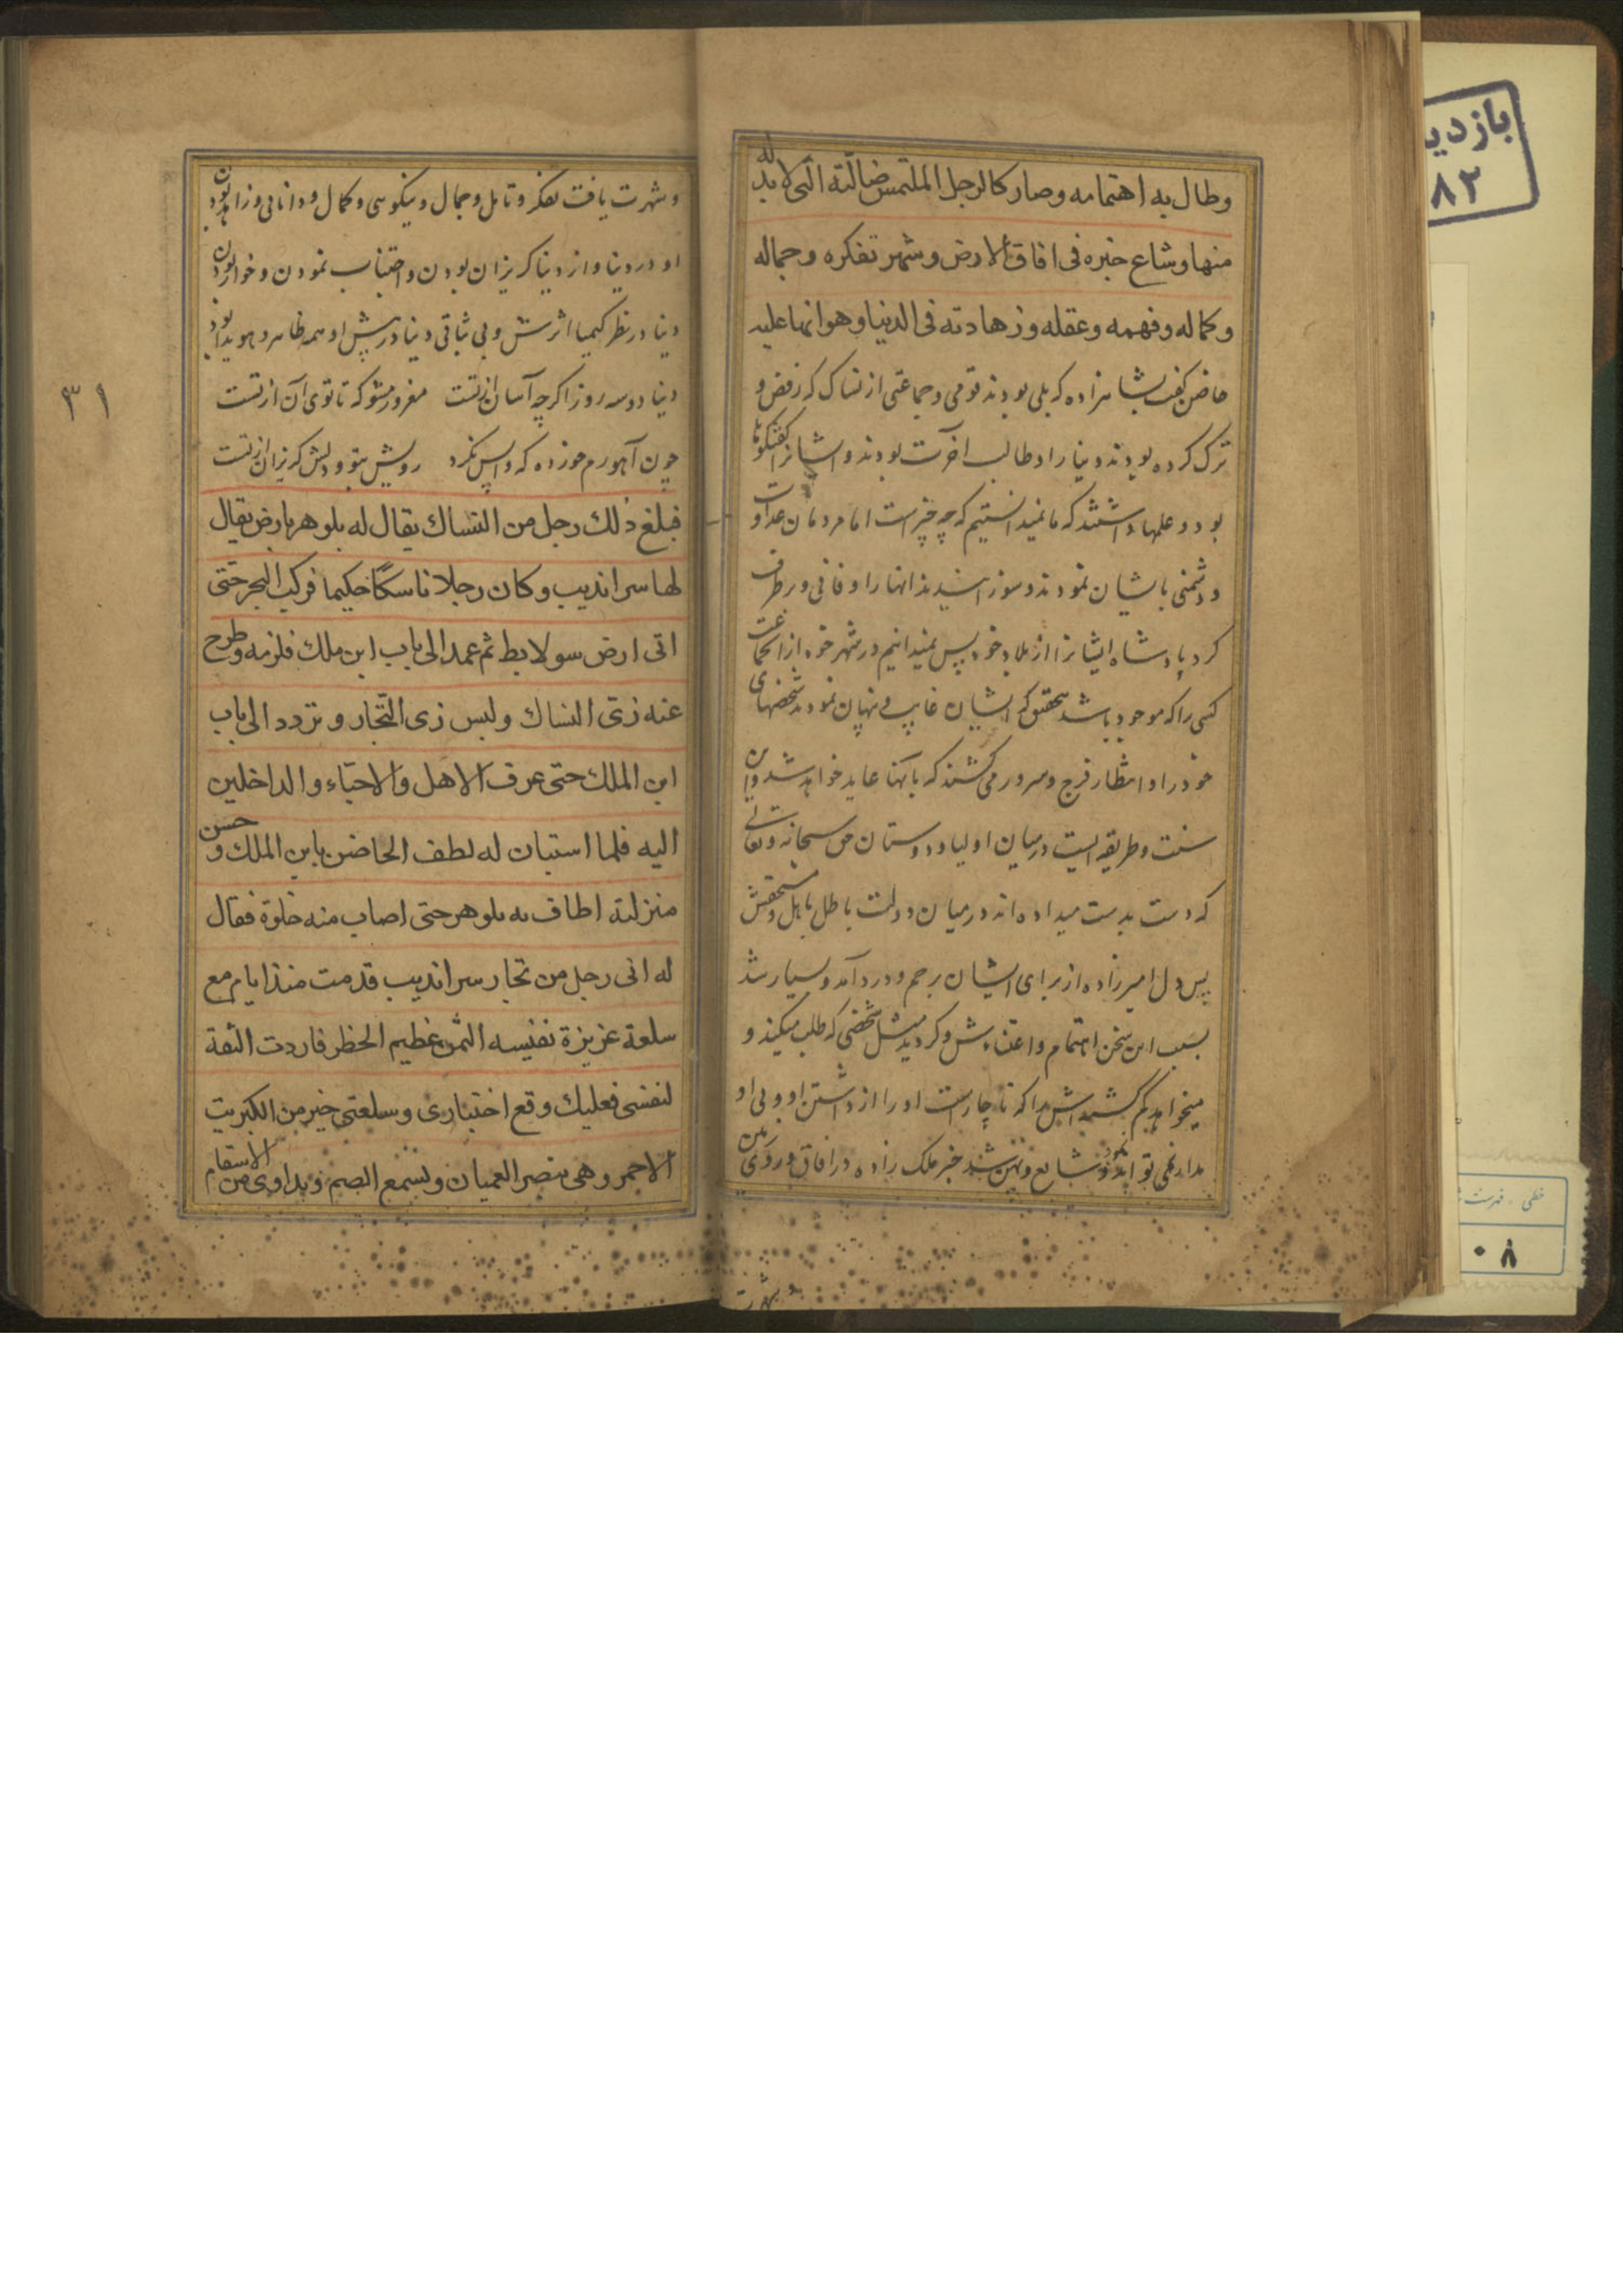 وطال به اهتمامه وصار كالرجل الملتمس ضالّته الّتى لابدّ له
منها وشاع خبره فى افاق الارض وشهر تفكره وجماله
وكماله وفهمه وعقله وزهادته فى الدنيا وهوانها عليه
حاضن گفت بشاهزاده كه بلى بودند قومى وجماعتى از نساك كه رفض و
ترك كرده بودند دنيا را وطالب آخرت بودند وايشانرا گفتگوها
بود وعلمها داشتند كه ما نميدانستيم كه چه چيز است اما مردمان عداوت
ودشمنى با ايشان نمودند وسوزانيدند انها را وفانى وبرطرف
كرد پادشاه ايشانرا از بلاد خود پس نميدانيم در شهر خود از انجماعت
كسى را كه موجود باشد بتحقيق كه ايشان غايب و پنهان نمودند شخصهاى
خود را و انتظار فرج وسرور مى كشند كه بآنها عايد خواهد شد واين
سنت وطريقه ايست درميان اوليا ودوستان حق سبحانه وتعالى
كه دست بدست ميداده اند درميان دولت باطل باهل ومستحقش
پس دل اميرزاده از براى ايشان برحم ودرد آمد وبسيار شد
بسبب اين سخن اهتمام واعتناءش وگرديد مثل شخصى كه طلب ميكند و
ميخواهد گم گشته اش را كه ناچار است او را از داشتن او وبى او
مدار نمى تواند نمود وشايع شد خبر ملك زاده در افاق و روى زمين
وشهرت
۳۱
وشهرت يافت تفكر وتامل وجمال ونيكوسى وكمال ودانائى وزاهد بودن
او در دنيا واز دنيا گريزان بودن واجتناب نمودن وخوار بودن
دنيا در نظر كيميا اثرش وبى ثباتى دنيا در پيش او همه ظاهر وهويدا بود
دنيا دوسه روز اگرچه آسان از تست مغرور مشو كه تا توى آن از تست
چون آهو رم خورده كه واپس نگرد رويش بتو ودلش گريزان از تست
فبلغ ذلك رجل من النساك يقال له بلوهر بارض يقال
لها سرانديب وكان رجلا ناسكًا حكيما فركب البحر حتى
اتى ارض سولابط ثم عمد الى باب ابن ملك فلزمه وطرح
عنه زىّ النساك ولبس زى التّجار وتردد الى باب
ابن الملك حتى عرف الاهل والاحبّاء والداخلين
اليه فلما استبان له لطف الحاضن بابن الملك وحسن
منزلته اطاف به بلوهر حتى اصاب منه خلوة فقال
له انى رجل من تجار سرانديب قدمت منذ ايام مع
سلعة عزيزة نفيسه الثمن عظيم الخطر فاردت الثقة
لنفسى فعليك وقع اختيارى وسلعتى خير من الكبريت
الاحمر وهى تبصر العميان وتسمع الصم وتداوى من الاسقام
بازديد
۸۲
خطى ، فهرست
۰۸